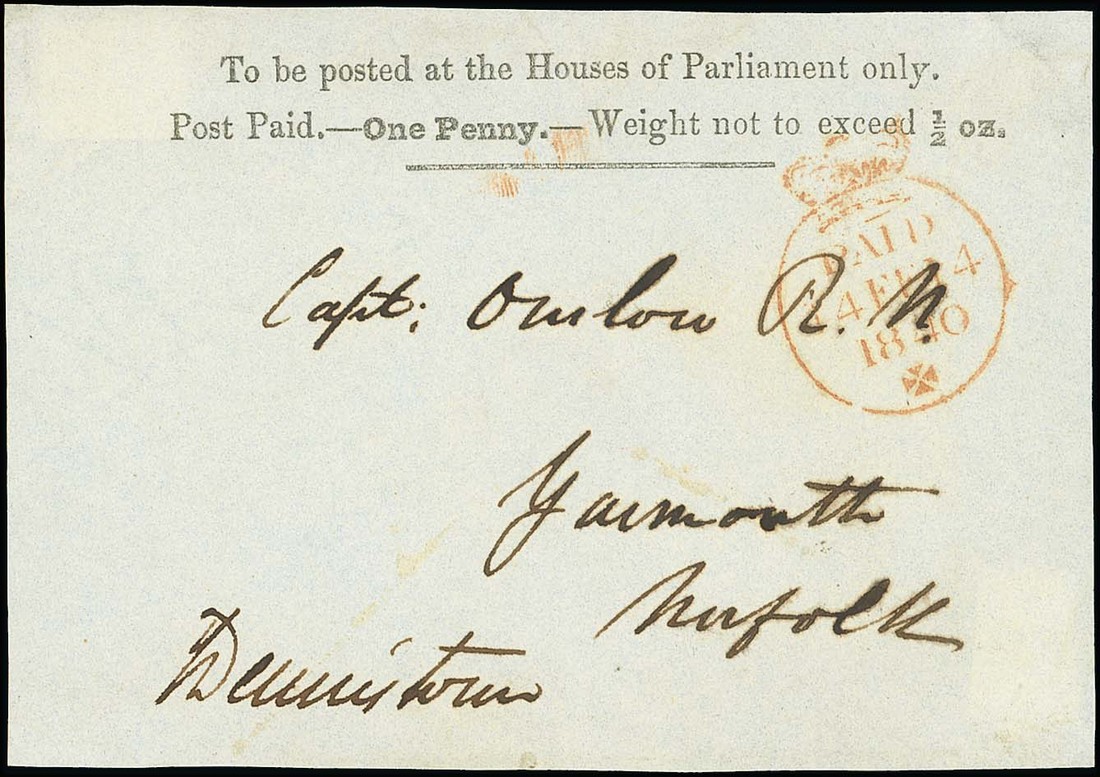 To be posted at the Houses of Parliament only.
Post Paid.—One Penny.—Weight not to exceed ½ oz.
PAID
14 FE 14
1840
Capt: Onslow R.N.
Yarmouth
Norfolk
Dennistoun